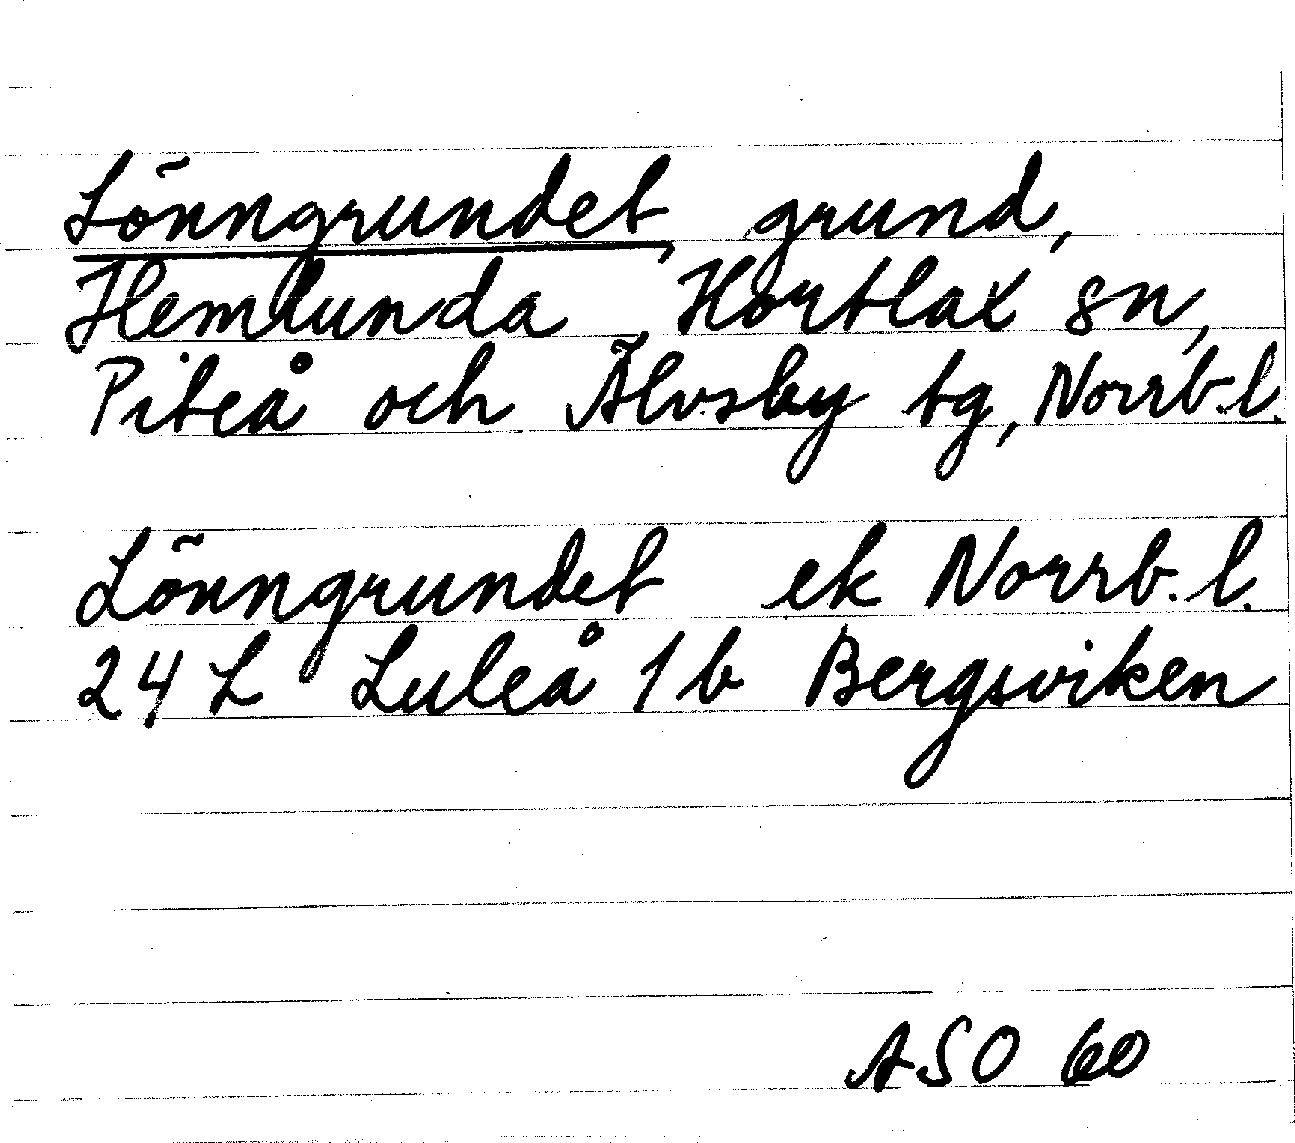 Lönngrundet, grund,
Hemlunda, Hortlax sn,
Piteå och Älvsby tg, Norrb.l.
Lönngrundet ek Norrb.l.
24 L Luleå 1b Bergsviken
ASO 60